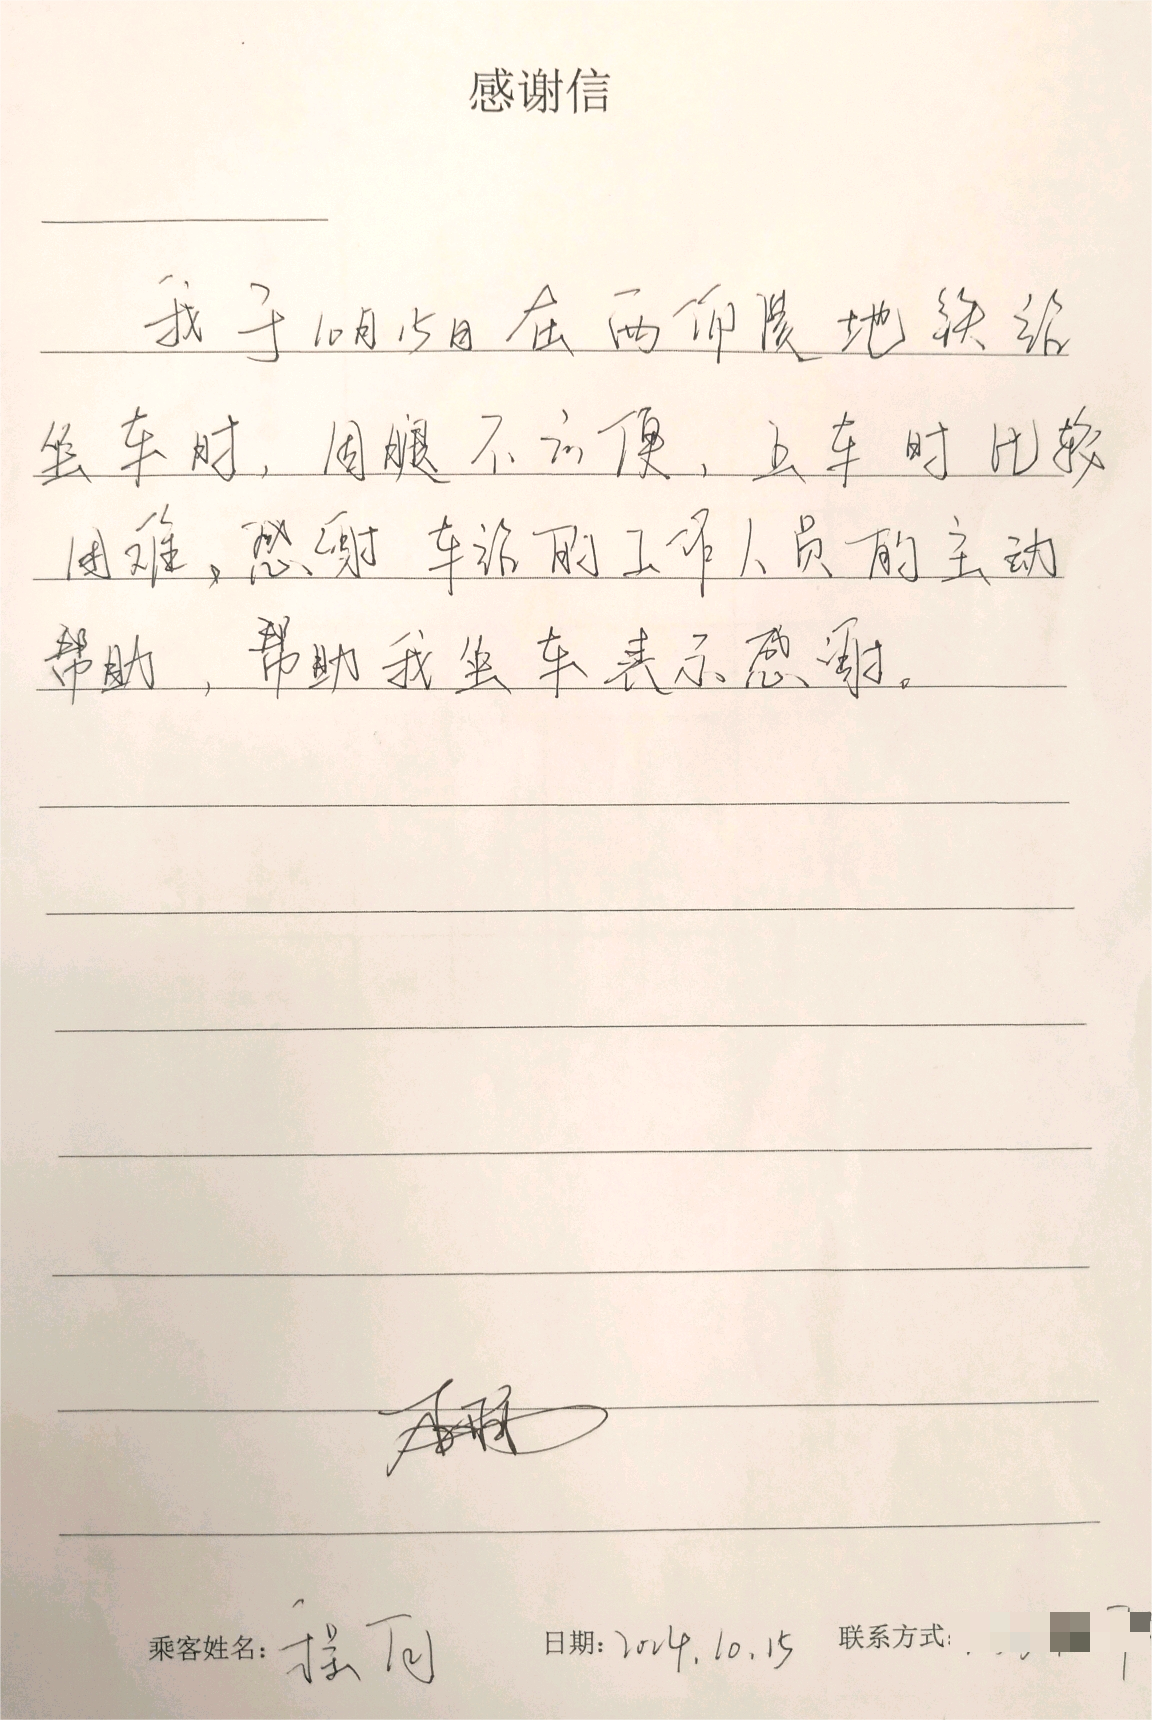 感谢信
我于10月15日在西仰陵地铁站
坐车时，因腿不方便，上车时比较
困难，感谢车站的工作人员的主动
帮助，帮助我坐车表示感谢。
乘客姓名： 日期：2024.10.15 联系方式：